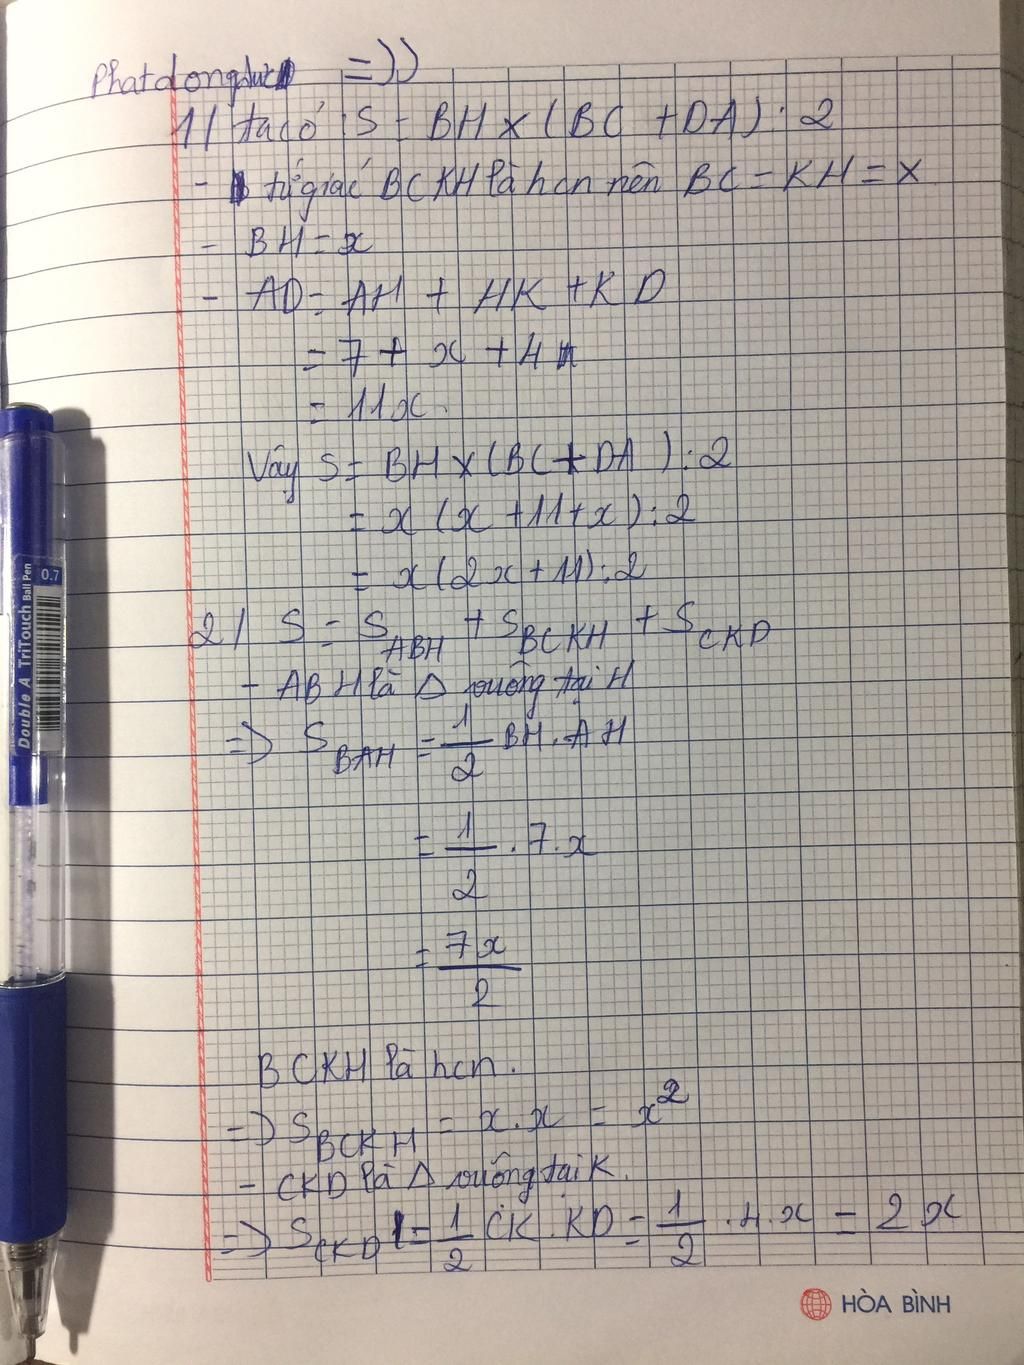 Phatdongduc =))
1/ ta có S = BH × (BC + DA) : 2
- tứ giác BCKH là hcn nên BC = KH = x
- BH = x
- AD = AH + HK + KD
= 7 + x + 4
= 11x.
Vây S = BH × (BC + DA) : 2
= x (x + 11 + x) : 2
= x(2x + 11) : 2
2/ S = S_ABH + S_BCKH + S_CKD
- ABH là Δ vuông tại H
=> S_BAH = 1/2 BH. AH
= 1/2 . 7. x
= 7x/2
BCKH là hcn.
=> S_BCKH = x. x = x²
- CKD là Δ vuông tại K.
=> S_CKD = 1/2 CK. KD = 1/2 . 4. x = 2x
HÒA BÌNH
Double A TriTouch Ball Pen 0.7